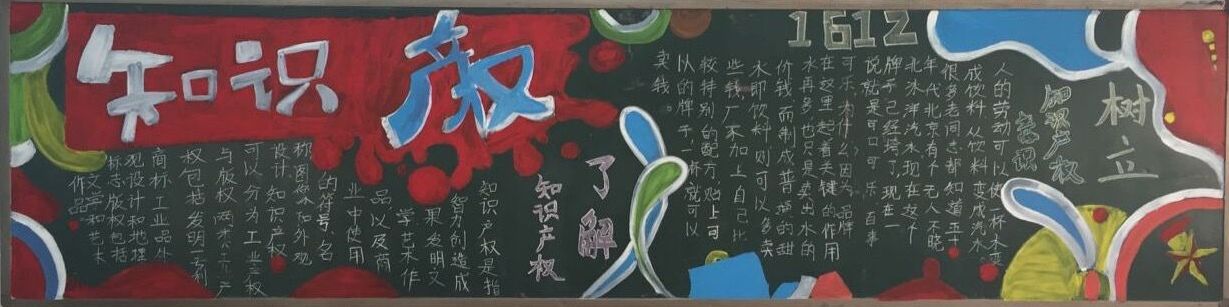 知识产权
1612
树立
知识产权
意识
人的劳动可以使一杯水变
成饮料从饮料变成汽水。
很多老同志都知道五十
年代北京有个无人不晓
北冰洋汽水现在这个
牌子已经垮了，现在一
说就是可口可乐，百事
可乐，为什么？因为，品牌
在这里起着关键的作用
水再多也只是卖出水的
价钱，而制成普通的甜
水即饮料则可以多卖
些钱，厂不加上自己比
较特别的配方贴上可
以的牌子一杯就可以
卖钱。
了解
知识产权
知识产权是指
智力创造成
果发明文
学艺术作
品以及商
业中使用
的符号，名
称图像和外观
设计.知识产权
可以分为工业产权
与版权两类.工业产
权包括发明专利
商标.工业品外
观设计和地理
标志.版权包括
文学和艺术
作品.